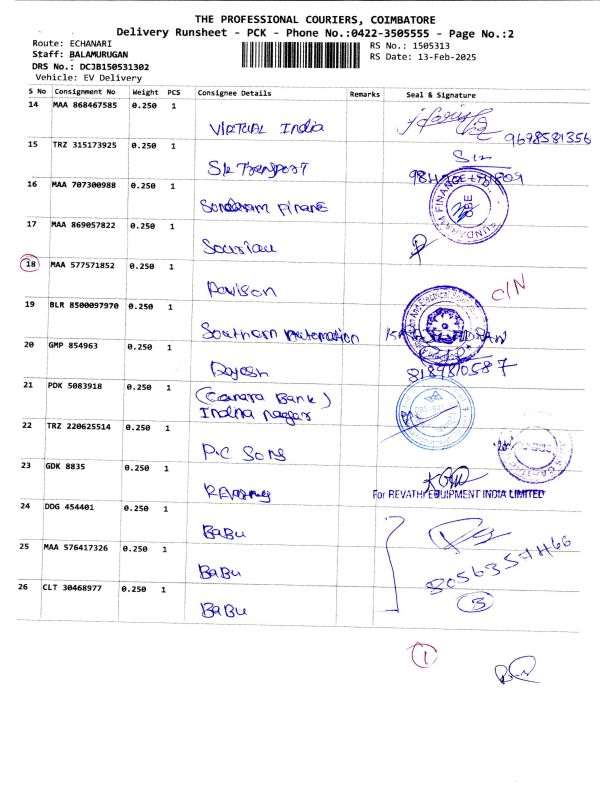 THE PROFESSIONAL COURIERS, COIMBATORE
Delivery Runsheet - PCK - Phone No.:0422-3505555 - Page No.:2
Route: ECHANARI
RS No.: 1505313
Staff: BALAMURUGAN
RS Date: 13-Feb-2025
DRS No.: DCJB150531302
Vehicle: EV Delivery
S No Consignment No Weight PCS Consignee Details Remarks Seal & Signature
14 MAA 868467585 0.250 1
VIRTUAL India
9698581356
15 TRZ 315173925 0.250 1
SK Transport
16 MAA 707300988 0.250 1
Sundaram Finance
SUNDARAM FINANCE LTD
17 MAA 869057822 0.250 1
18 MAA 577571852 0.250 1
Davison
C/N
19 BLR 8500097970 0.250 1
Southern Automation
20 GMP 854963 0.250 1
Rajesh
8189810587
21 PDK 5083918 0.250 1
(Canara Bank)
Indhra nagar
22 TRZ 220625514 0.250 1
P.C SONS
23 GDK 8835 0.250 1
For REVATHI EQUIPMENT INDIA LIMITED
24 DDG 454401 0.250 1
BaBu
25 MAA 576417326 0.250 1
BaBu
26 CLT 30468977 0.250 1
BaBu
3
1